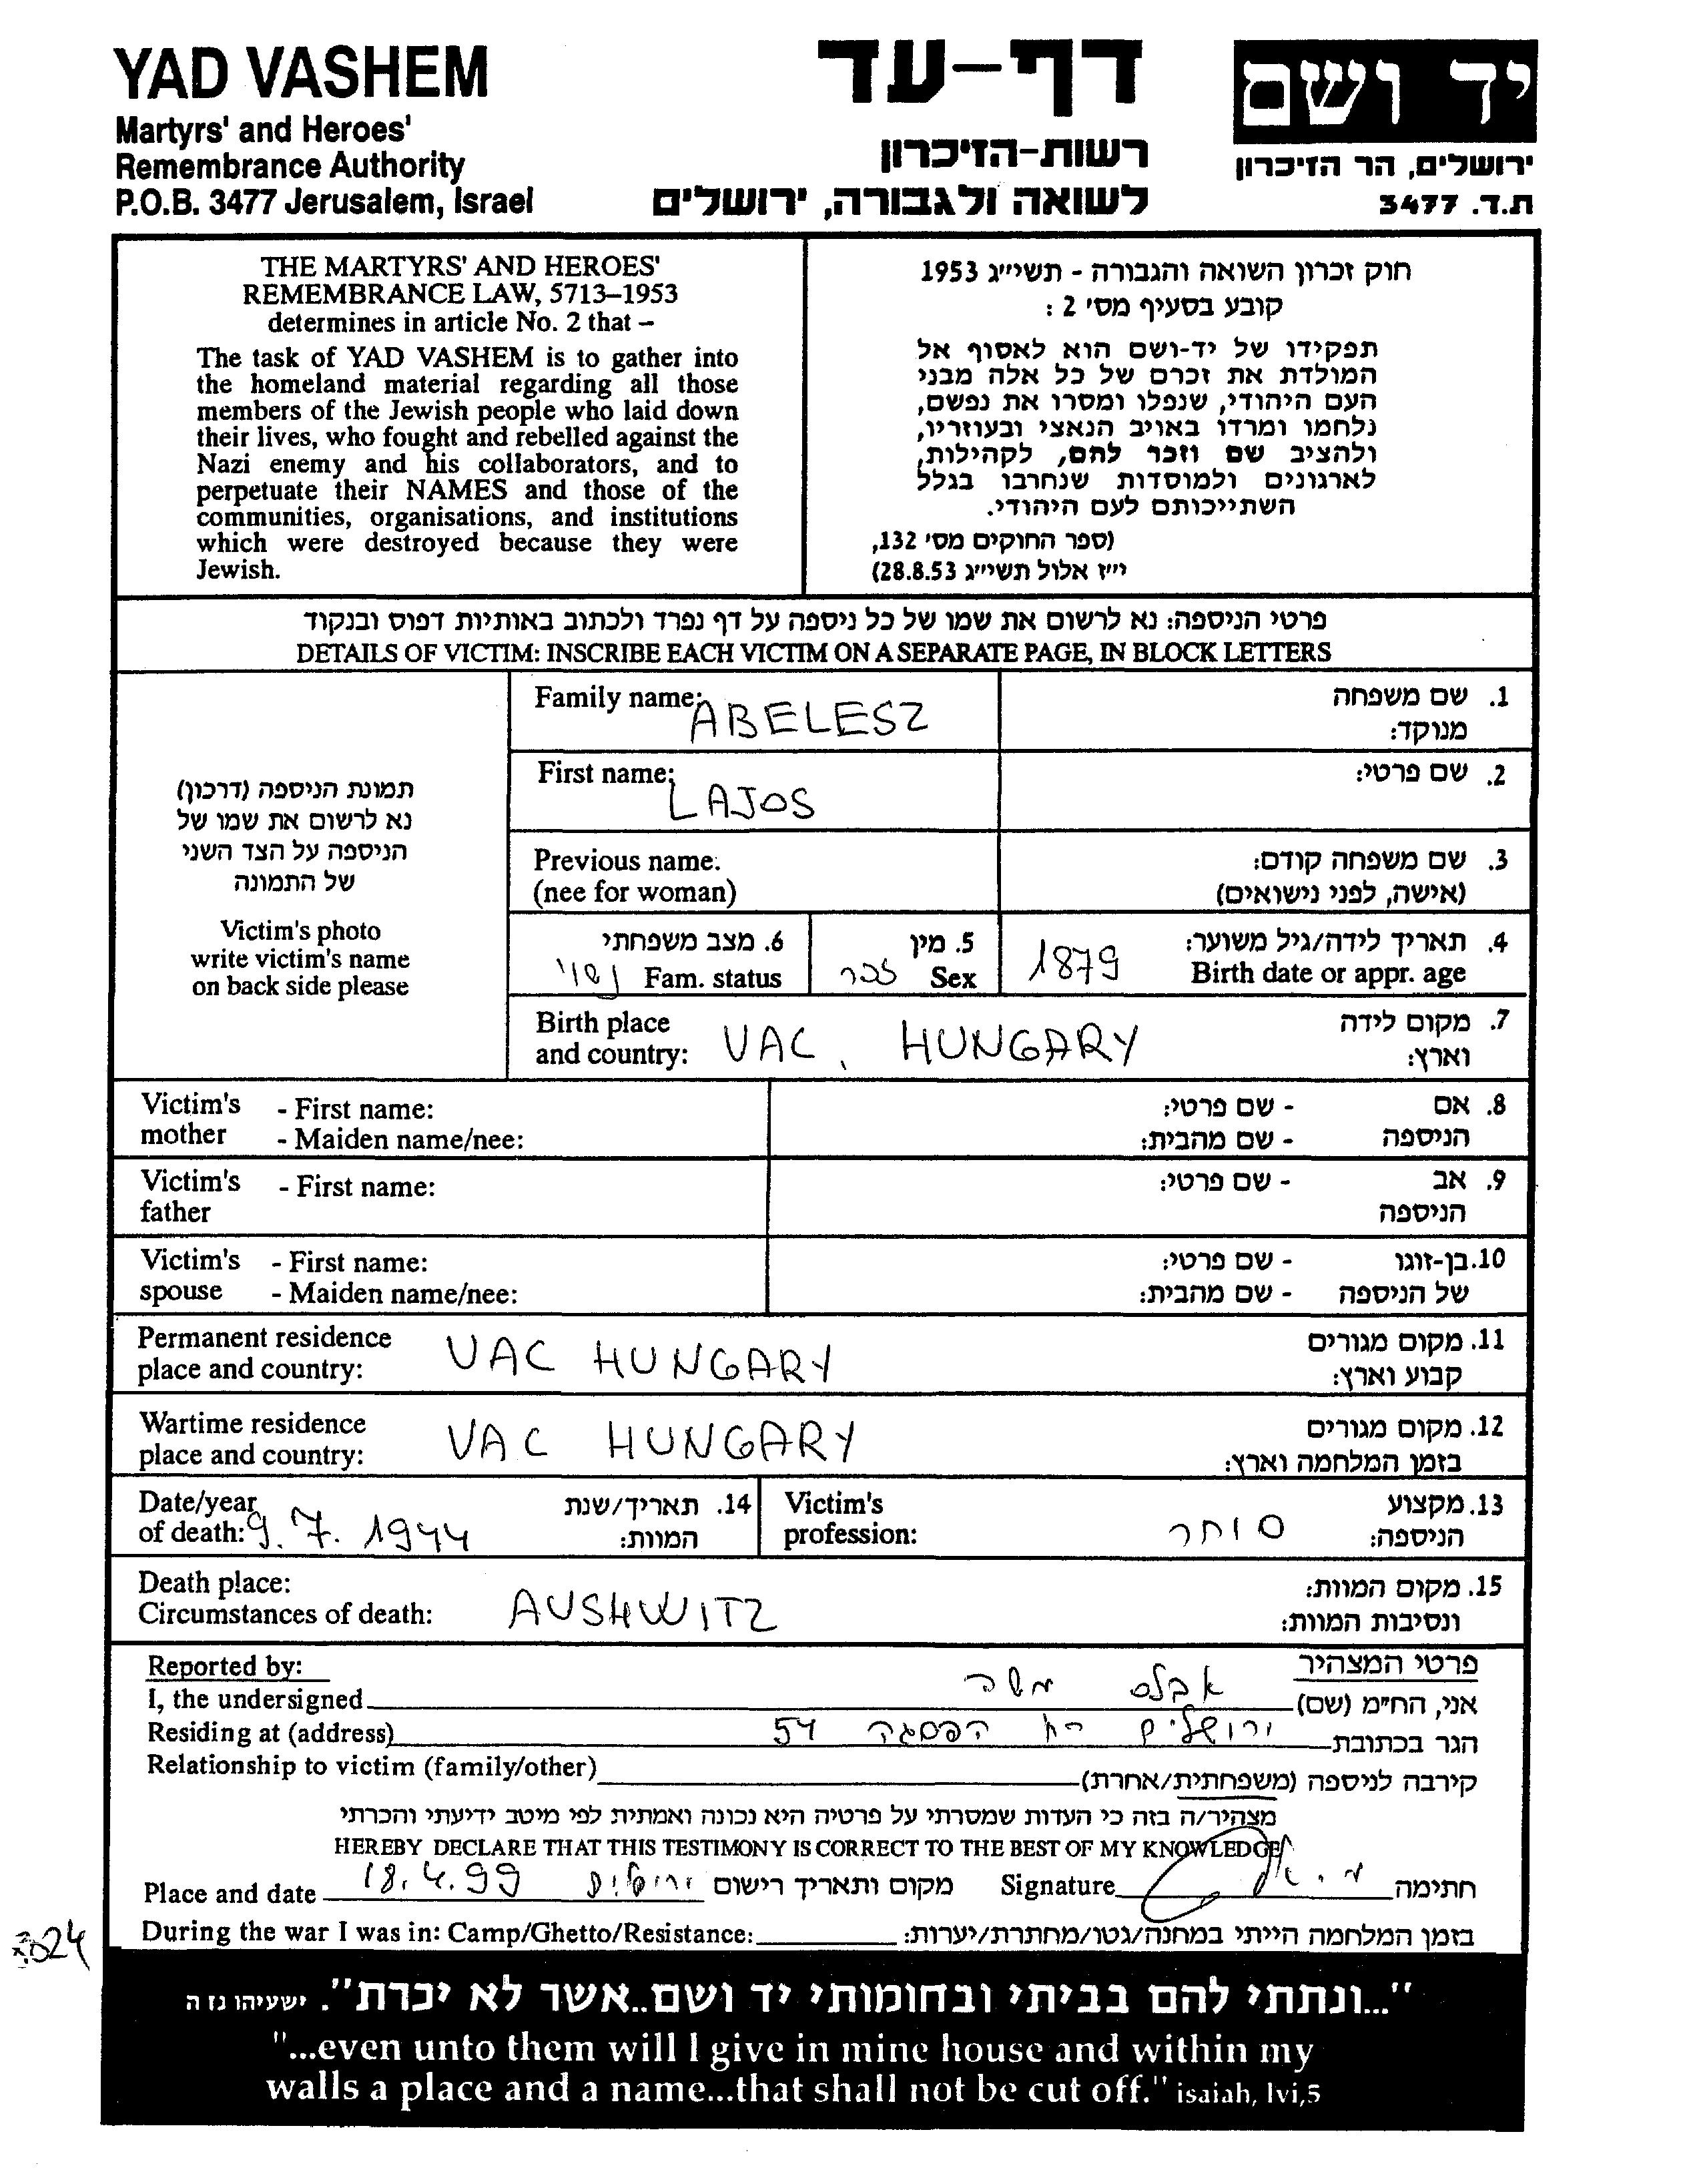 YAD VASHEM
Martyrs' and Heroes'
Remembrance Authority
P.O.B. 3477 Jerusalem, Israel
דף-עד
רשות-הזיכרון
לשואה ולגבורה, ירושלים
יד ושם
ירושלים, הר הזיכרון
ת.ד. 3477
THE MARTYRS' AND HEROES'
REMEMBRANCE LAW, 5713–1953
determines in article No. 2 that –
The task of YAD VASHEM is to gather into
the homeland material regarding all those
members of the Jewish people who laid down
their lives, who fought and rebelled against the
Nazi enemy and his collaborators, and to
perpetuate their NAMES and those of the
communities, organisations, and institutions
which were destroyed because they were
Jewish.
חוק זכרון השואה והגבורה - תשי״ג 1953
קובע בסעיף מס' 2 :
תפקידו של יד-ושם הוא לאסוף אל
המולדת את זכרם של כל אלה מבני
העם היהודי, שנפלו ומסרו את נפשם,
נלחמו ומרדו באויב הנאצי ובעוזריו,
ולהציב שם וזכר להם, לקהילות,
לארגונים ולמוסדות שנחרבו בגלל
השתייכותם לעם היהודי.
(ספר החוקים מס' 132,
י״ז אלול תשי״ג 28.8.53)
פרטי הניספה: נא לרשום את שמו של כל ניספה על דף נפרד ולכתוב באותיות דפוס ובנקוד
DETAILS OF VICTIM: INSCRIBE EACH VICTIM ON A SEPARATE PAGE, IN BLOCK LETTERS
תמונת הניספה (דרכון)
נא לרשום את שמו של
הניספה על הצד השני
של התמונה
Victim's photo
write victim's name
on back side please
Family name: ABELESZ
1. שם משפחה
מנוקד:
First name: LAJOS
2. שם פרטי:
Previous name.
(nee for woman)
3. שם משפחה קודם:
(אישה, לפני נישואים)
4. תאריך לידה/גיל משוער:
Birth date or appr. age 1879
5. מין
Sex זכר
6. מצב משפחתי
Fam. status נשוי
Birth place
and country: VAC, HUNGARY
7. מקום לידה
וארץ:
Victim's - First name:
mother - Maiden name/nee:
8. אם - שם פרטי:
הניספה - שם מהבית:
Victim's - First name:
father
9. אב - שם פרטי:
הניספה
Victim's - First name:
spouse - Maiden name/nee:
10. בן-זוגו - שם פרטי:
של הניספה - שם מהבית:
Permanent residence
place and country: VAC HUNGARY
11. מקום מגורים
קבוע וארץ:
Wartime residence
place and country: VAC HUNGARY
12. מקום מגורים
בזמן המלחמה וארץ:
Date/year
of death: 9. 7. 1944
14. תאריך/שנת
המוות:
Victim's
profession: סוחר
13. מקצוע
הניספה:
Death place:
Circumstances of death: AUSHWITZ
15. מקום המוות:
ונסיבות המוות:
Reported by:
פרטי המצהיר
I, the undersigned אבלס משה אני, הח״מ (שם)
Residing at (address) ירושלים רח הפסגה 54 הגר בכתובת
Relationship to victim (family/other) קירבה לניספה (משפחתית/אחרת)
מצהיר/ה בזה כי העדות שמסרתי על פרטיה היא נכונה ואמתית לפי מיטב ידיעתי והכרתי
HEREBY DECLARE THAT THIS TESTIMONY IS CORRECT TO THE BEST OF MY KNOWLEDGE
Place and date 18.4.99 ירושלים מקום ותאריך רישום Signature חתימה
During the war I was in: Camp/Ghetto/Resistance: בזמן המלחמה הייתי במחנה/גטו/מחתרת/יערות:
"...ונתתי להם בביתי ובחומותי יד ושם..אשר לא יכרת". ישעיהו נז ה
"...even unto them will I give in mine house and within my
walls a place and a name...that shall not be cut off." isaiah, lvi,5